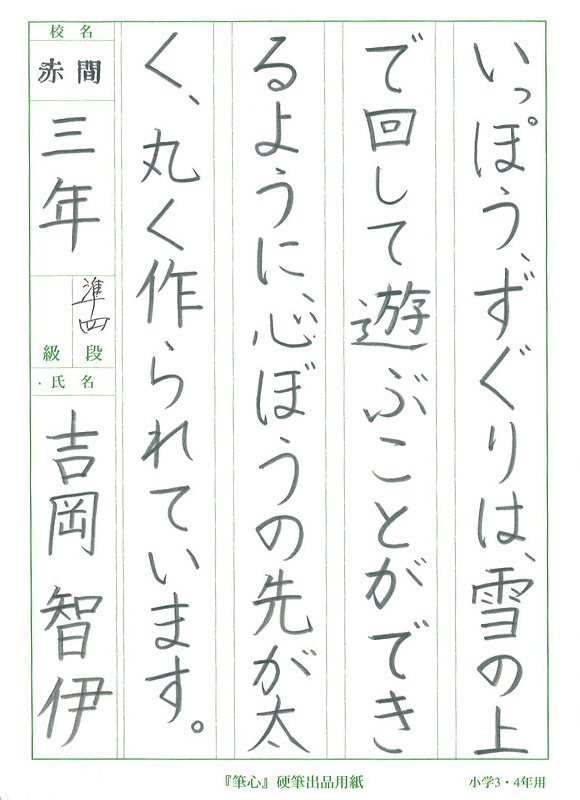 いっぽう、ずぐりは、雪の上
で回して遊ぶことができ
るように、心ぼうの先が太
く、丸く作られています。
校名
赤間
三年
準四
級 段
氏名
吉岡 智伊
『筆心』硬筆出品用紙
小学3・4年用